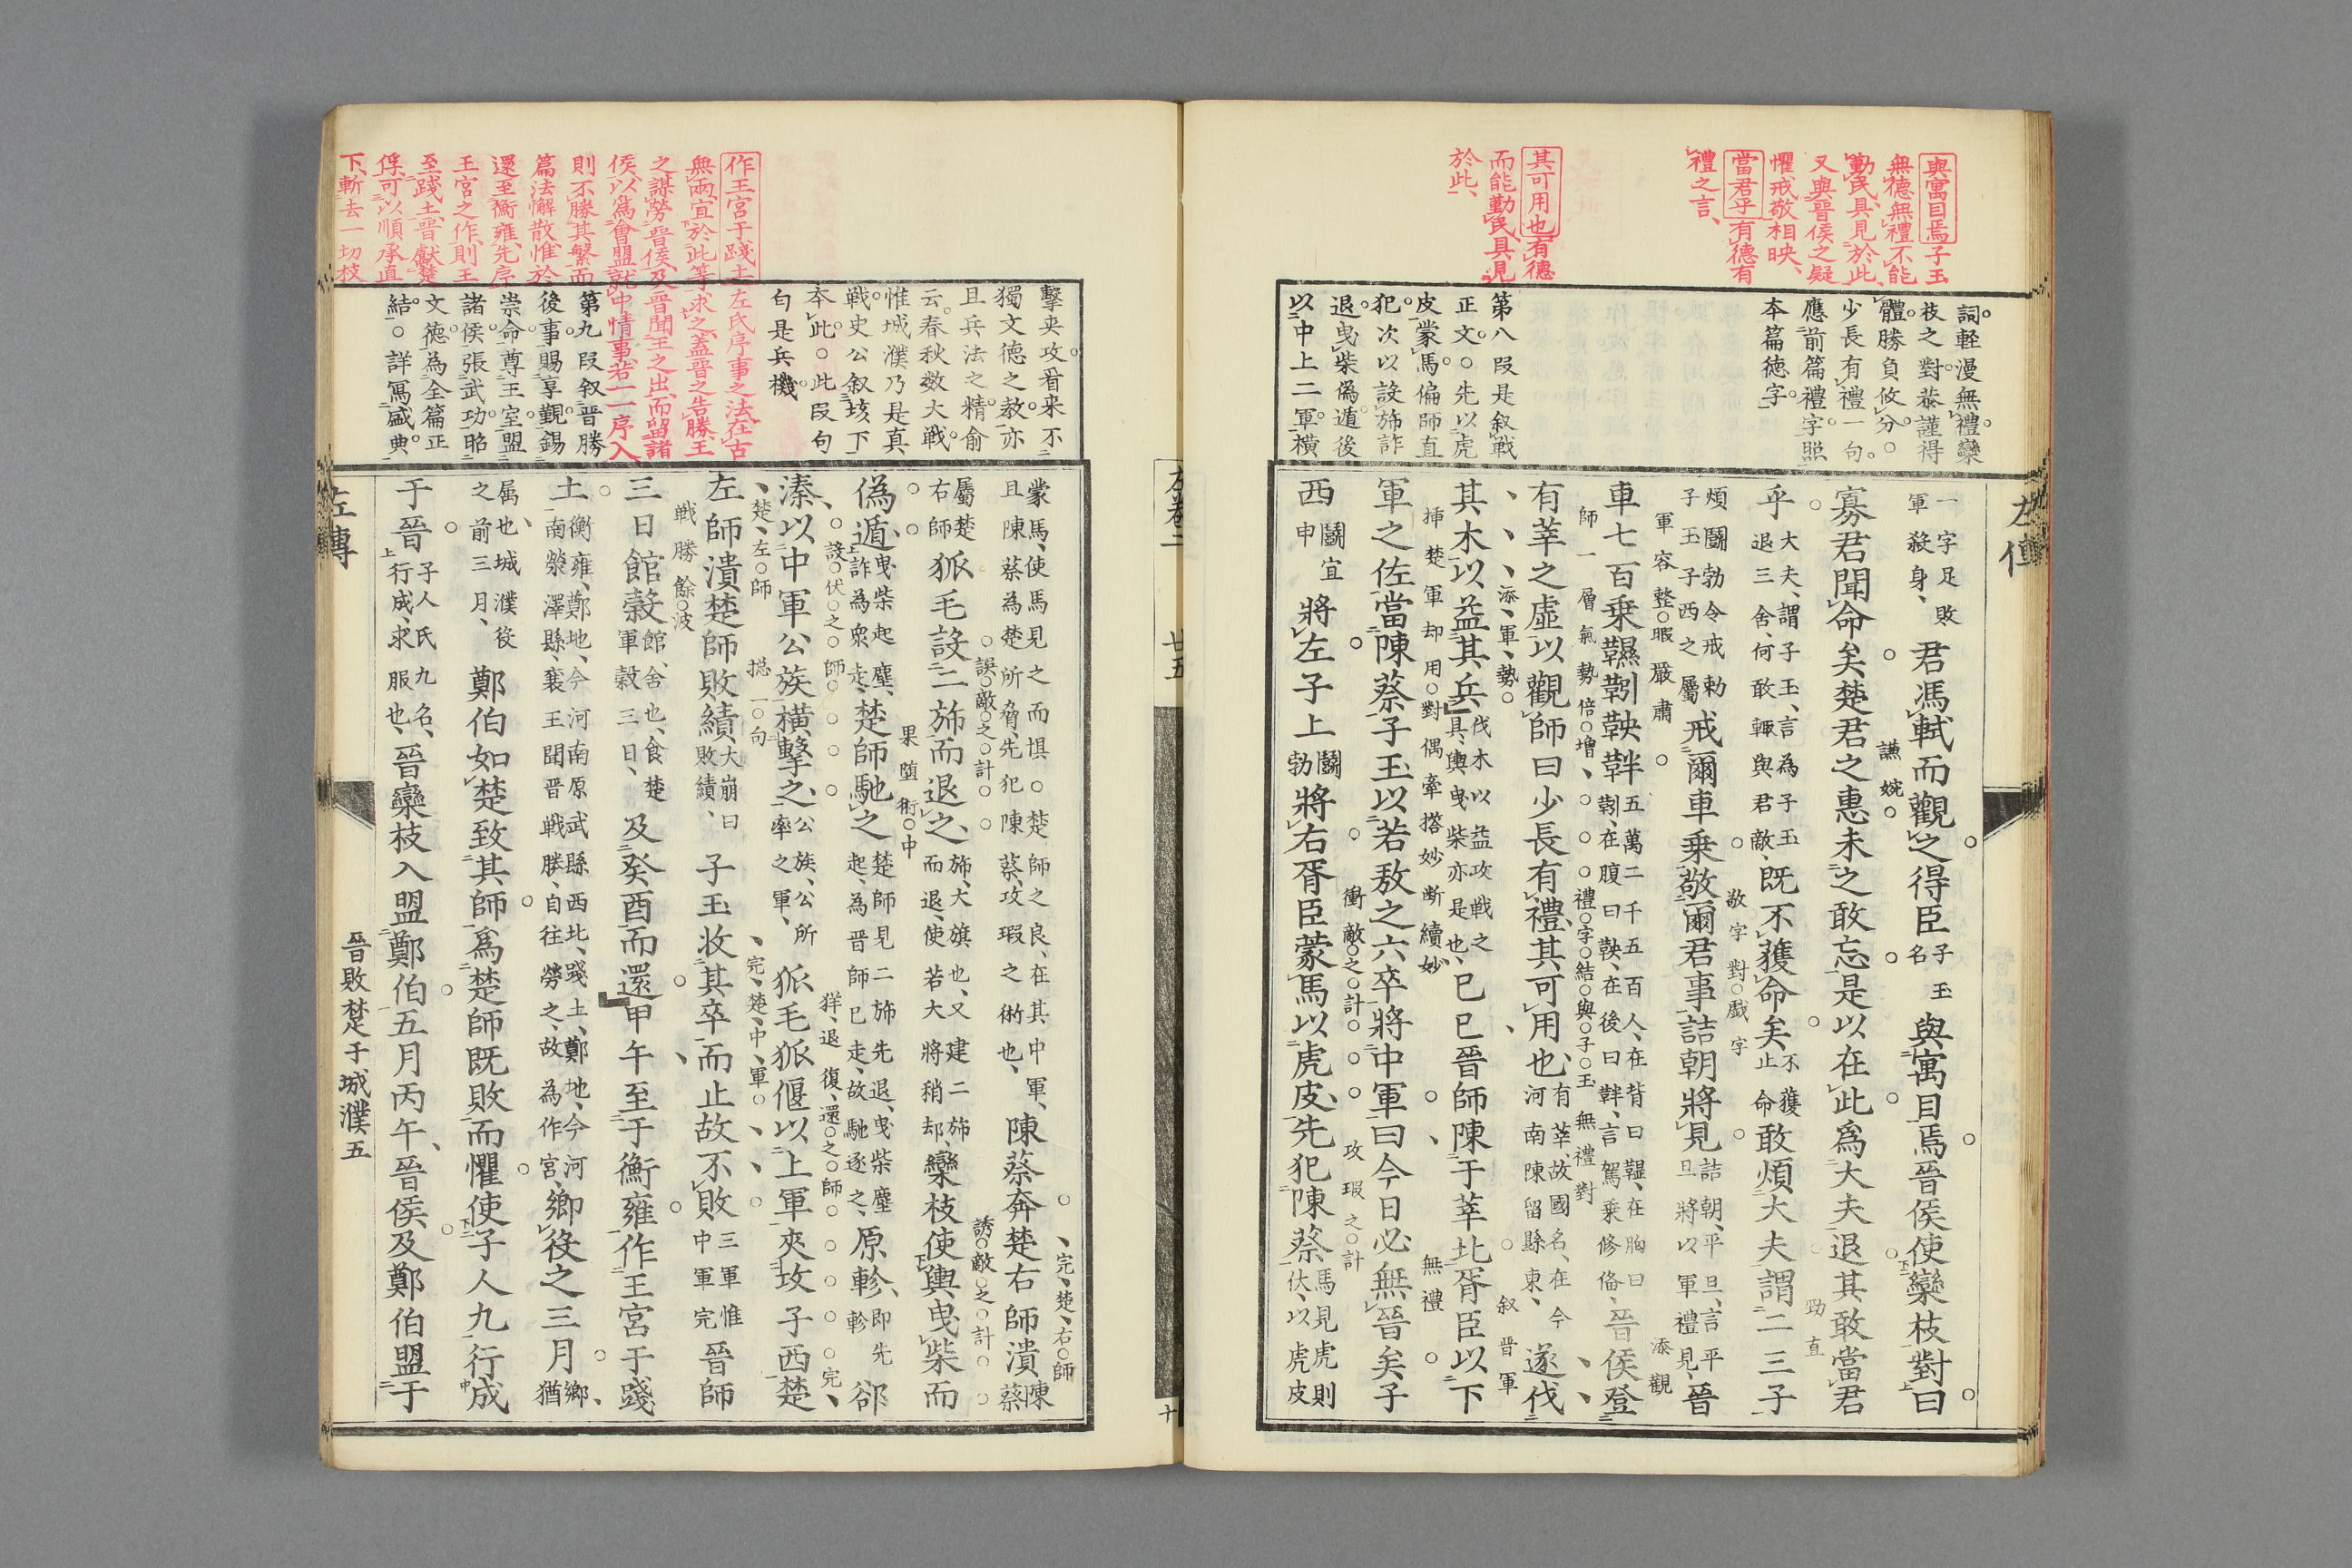 與寓目焉子玉
無德無禮不能
勤民、具見於此
又與晉侯之疑
懼戒敬相映、
當君乎有德有
禮之言、
其可用也有德
而能勤民具見
於此、
詞軽漫無禮欒
枝之對恭謹得
體勝負攸分○
少長有禮一句
應前篇禮字照
本篇徳字
第八段是叙戰
正文○先以虎
皮蒙馬偏師直
犯次以設旆詐
退曳柴偽遁後
以中上二軍橫
左傳
一字足敗
軍殺身、
君馮軾而觀之得臣
子玉
名
與寓目焉晉侯使欒枝對曰
謙婉
寡君聞命矣楚君之惠未之敢忘是以在此爲大夫退其敢當君
勁直
乎
大夫、謂子玉、言為子玉
退三舍、何敢輙與君敵、
既不獲命矣
不獲
止命
敢煩大夫謂二三子
煩鬭勃令戒勅
子玉子西之屬、
戒爾車乗敬爾君事詰朝將見
詰朝、平旦、言平
旦將以軍禮見、
晉
敬字對戲字
軍容整暇嚴肅
添觀
車七百乗韅靷鞅靽
五萬二千五百人、在背曰韅、在胸曰
靷、在腹曰鞅、在後曰靽、言駕乗修俻、
晉侯登
師一層氣勢倍增
禮字結與子玉無禮對
有莘之虛以觀師曰少長有禮其可用也
有莘、故國名、在今
河南陳留縣東、
遂伐
添軍勢
叙晉軍
其木以益其兵
伐木以益攻戦之
具、輿曳柴亦是也、
已巳晉師陳于莘北胥臣以下
挿楚軍却用對偶牽搭妙断續妙
無禮
軍之佐當陳蔡子玉以若敖之六卒將中軍曰今日必無晉矣子
衝敵之計
攻瑕之計
西
鬭宜
申
將左子上
鬭
勃
將右胥臣蒙馬以虎皮先犯陳蔡
馬見虎則
伏、以虎皮
左卷二
廿五
作王宮于踐土左氏序事之法在古
無兩宜於此等求之蓋晉之告勝王
之謀勞晉侯及晉聞王之出而留諸
侯以爲會盟就中情事若一一序入
則不勝其繁而
篇法懈散惟於
還至衡雍先序
王宮之作則王
至踐土晉獻楚
俘可以順承直
下斬去一切枝
擊夾攻看来不
獨文徳之教亦
且兵法之精俞
云春秋数大戦
惟城濮乃是真
戦史公叙垓下
本此○此段句
句是兵機
第九段叙晉勝
後事賜享覲錫
崇命尊王室盟
諸侯張武功昭
文徳為全篇正
結○詳寫盛典
蒙馬、使馬見之而惧○楚師之良、在其中軍、
且陳蔡為楚所脅、先犯陳蔡、攻瑕之術也、
陳蔡奔楚右師潰
陳
蔡
完楚右師
屬楚
右師
狐毛設二旆而退之
旆、大旗也、又建二旆
而退、使若大將稍却、
欒枝使輿曳柴而
誤敵之計
誘敵之計
偽遁
曳柴起塵、
詐為衆走、
楚師馳之
楚師見二旆先退、曳柴塵
起、為晉師已走、故馳逐之、
原軫
即先
軫
郤
果堕術中
溱以中軍公族橫擊之
公族、公所
率之軍、
狐毛狐偃以上軍夾攻子西楚
設伏之師
佯退復還之師
完
左師潰楚師敗績
大崩曰
敗績、
子玉收其卒而止故不敗
三軍惟
中軍完
晉師
楚左師
摠一句
完楚中軍
三日館穀
館、舍也、食楚
軍穀三日、
及癸酉而還甲午至于衡雍作王宮于踐
戦勝餘波
土
衡雍、鄭地、今河南原武縣西北、踐土、鄭地、今河
南滎澤縣、襄王聞晉戦勝、自往勞之、故為作宮、
鄉役之三月
鄉、
猶
属也、城濮役
之前三月、
鄭伯如楚致其師爲楚師既敗而懼使子人九行成
于晉
子人氏九名、
行成、求服也、
晉欒枝入盟鄭伯五月丙午晉侯及鄭伯盟于
左傳
晉敗楚于城濮五